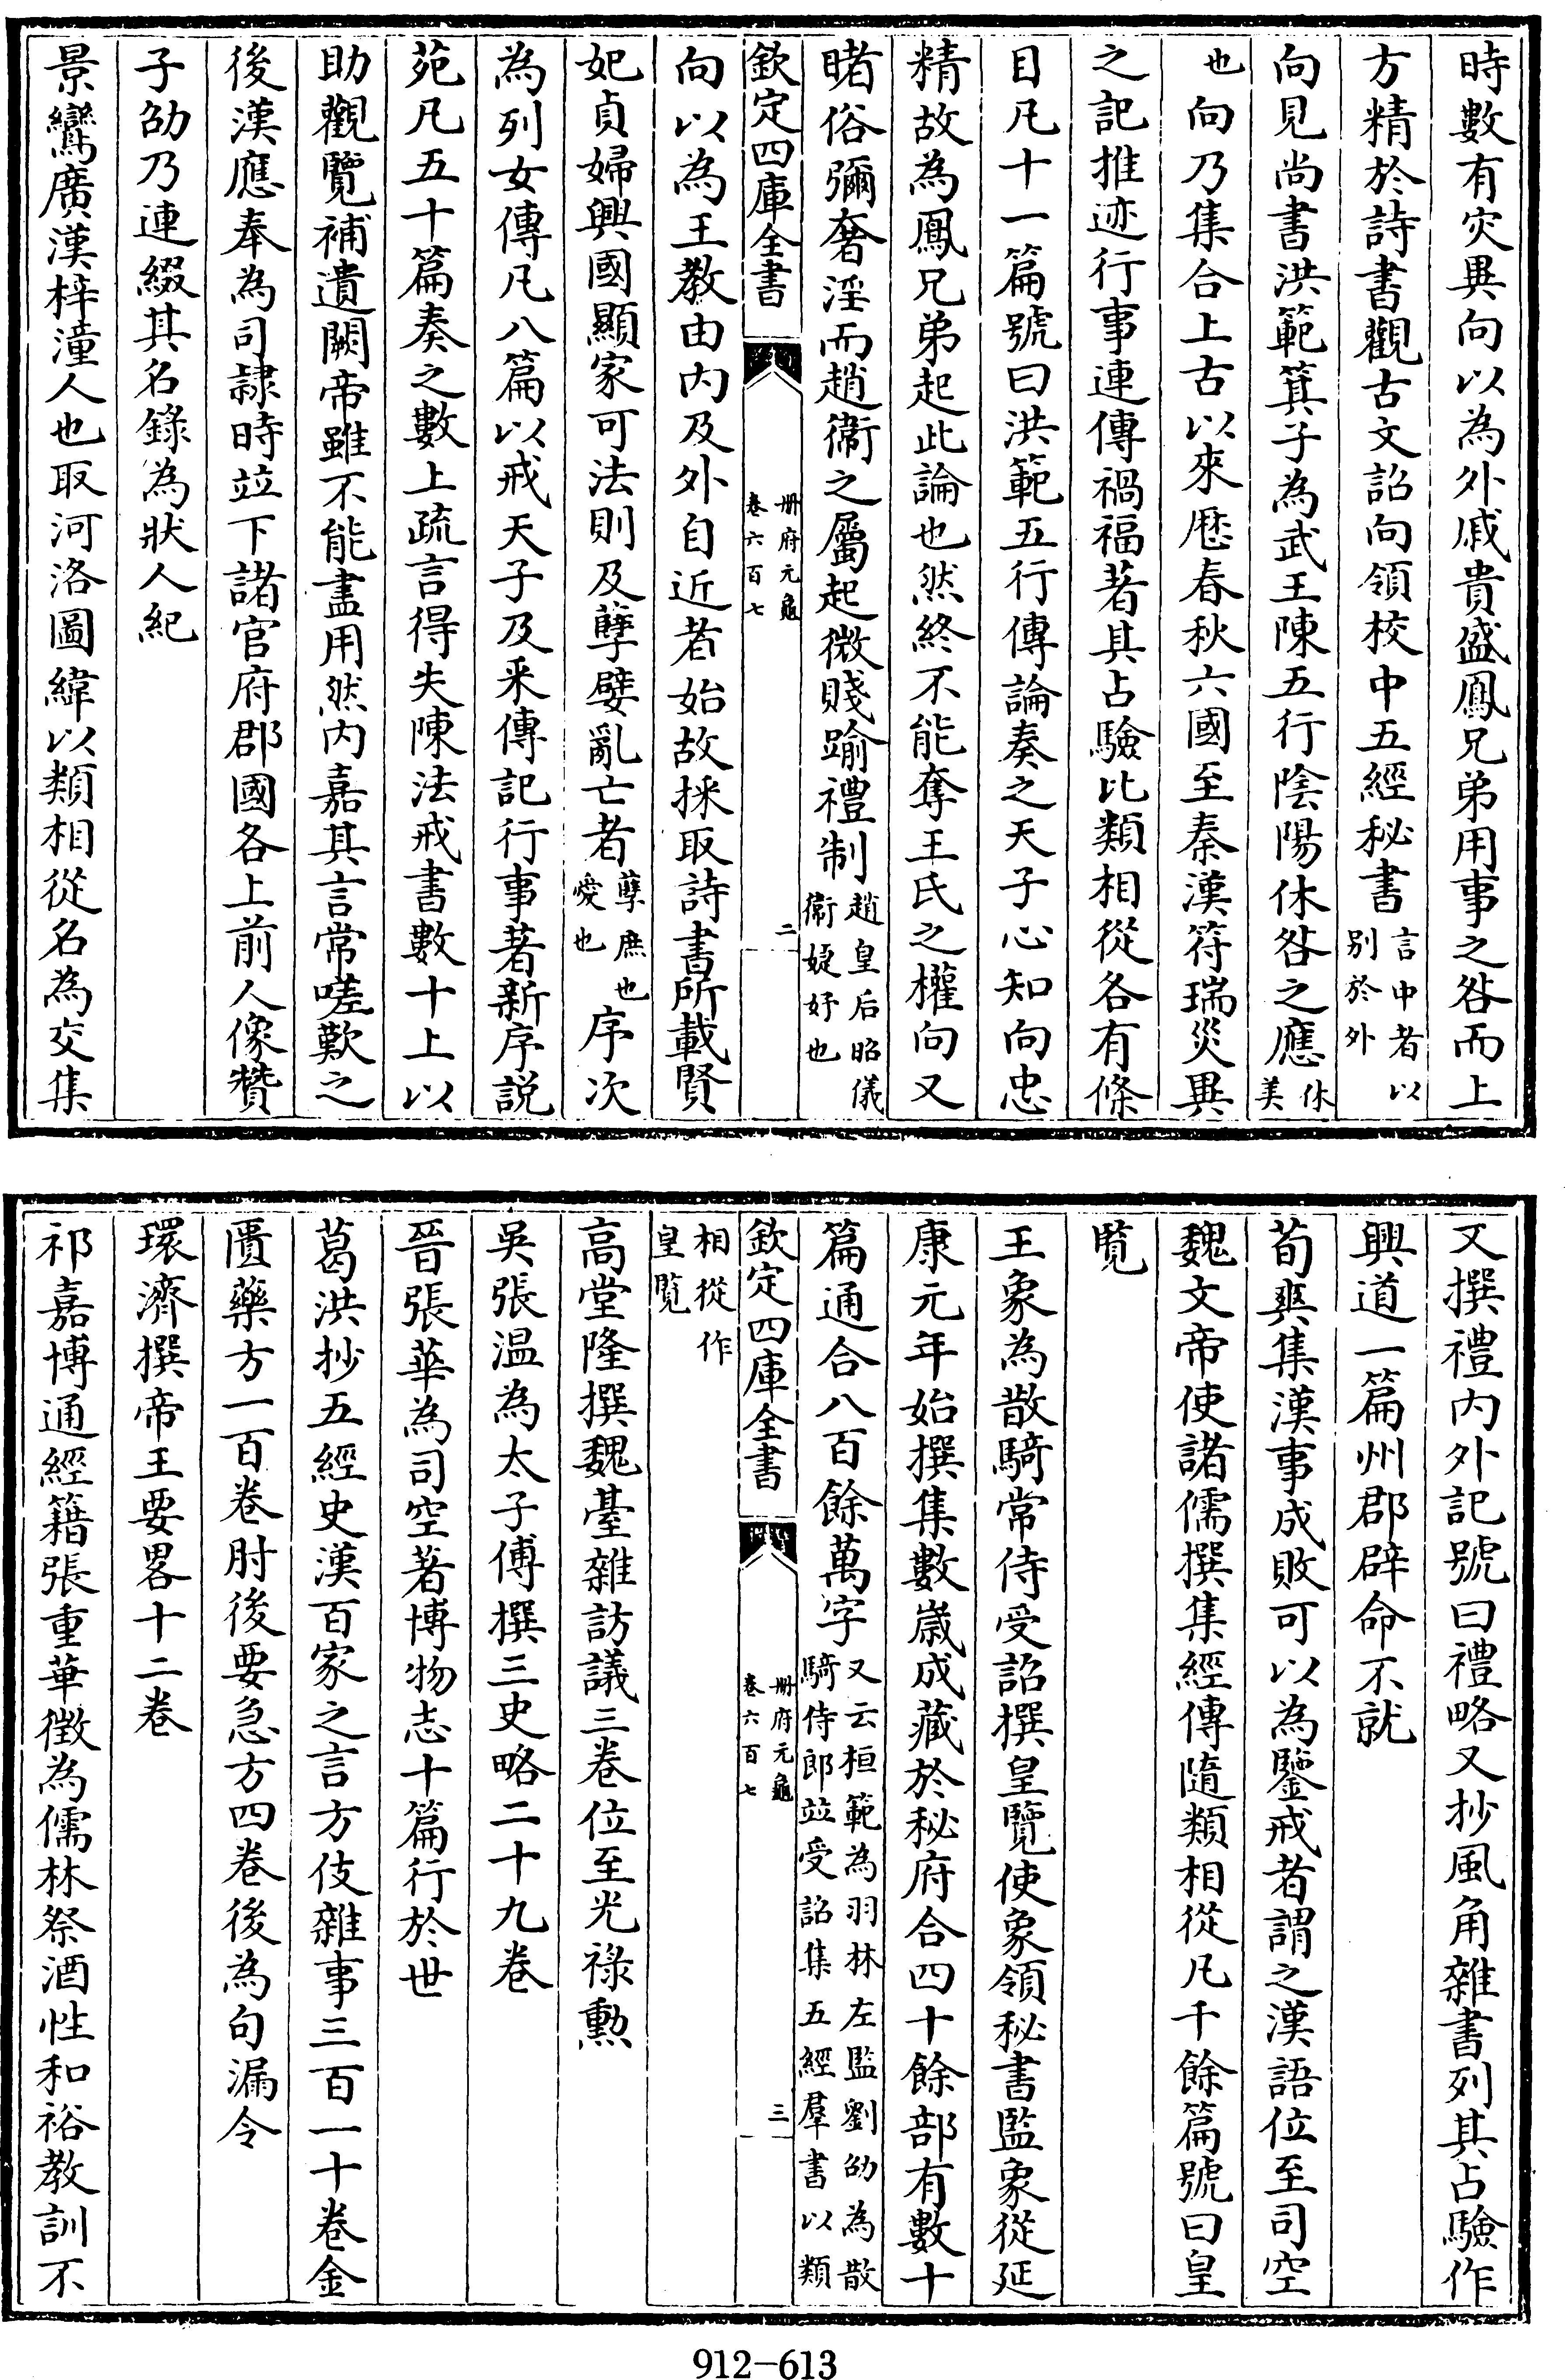 時數有灾異向以為外戚貴盛鳳兄弟用事之咎而上
方精於詩書觀古文詔向領校中五經秘書言中者以别於外
向見尚書洪範箕子為武王陳五行陰陽休咎之應休美
也向乃集合上古以來歷春秋六國至秦漢符瑞災異
之記推迹行事連傳禍福著其占驗比類相從各有條
目凡十一篇號曰洪範五行傳論奏之天子心知向忠
精故為鳳兄弟起此論也然終不能奪王氏之權向又
睹俗彌奢淫而趙衞之屬起微賤踰禮制趙皇后昭儀衞婕妤也
欽定四庫全書 册府元龜卷六百七 二
向以為王教由内及外自近者始故採取詩書所載賢
妃貞婦興國顯家可法則及孽嬖亂亡者孽庶也愛也序次
為列女傳凡八篇以戒天子及采傳記行事著新序説
苑凡五十篇奏之數上疏言得失陳法戒書數十上以
助觀覽補遺闕帝雖不能盡用然内嘉其言常嗟歎之
後漢應奉為司隷時竝下諸官府郡國各上前人像贊
子劭乃連綴其名錄為狀人紀
景鸞廣漢梓潼人也取河洛圖緯以類相從名為交集
又撰禮内外記號曰禮略又抄風角雜書列其占驗作
興道一篇州郡辟命不就
荀爽集漢事成敗可以為鑒戒者謂之漢語位至司空
魏文帝使諸儒撰集經傳隨類相從凡千餘篇號曰皇
覽
王象為散騎常侍受詔撰皇覽使象領秘書監象從延
康元年始撰集數嵗成藏於秘府合四十餘部有數十
篇通合八百餘萬字又云桓範為羽林左監劉劭為散騎侍郎竝受詔集五經羣書以類
欽定四庫全書 册府元龜卷六百七 三
相從作皇覽
高堂隆撰魏臺雜訪議三卷位至光祿勲
吳張温為太子傅撰三史略二十九卷
晉張華為司空著博物志十篇行於世
葛洪抄五經史漢百家之言方伎雜事三百一十卷金
匱藥方一百卷肘後要急方四卷後為句漏令
環濟撰帝王要畧十二卷
祁嘉博通經籍張重華徵為儒林祭酒性和裕教訓不
912-613